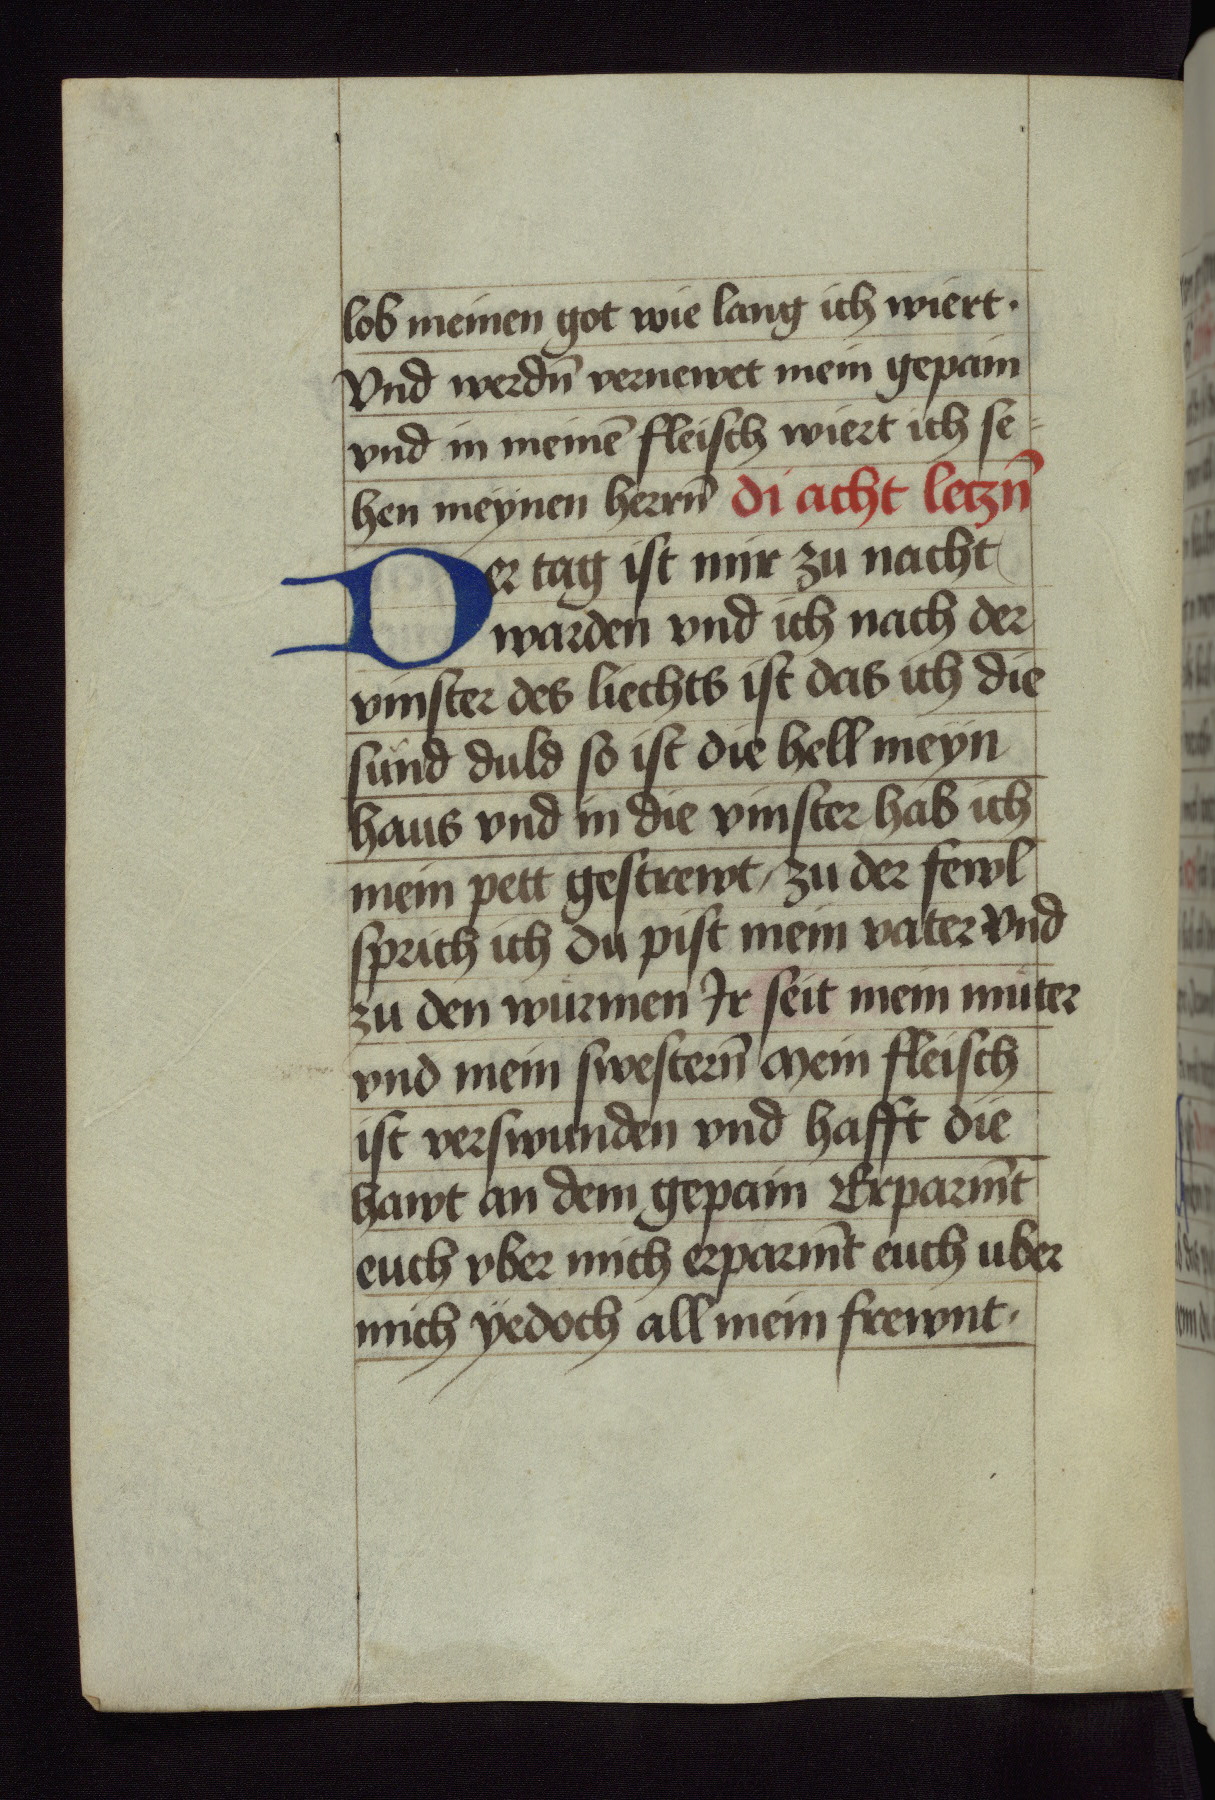 lob meinen got wie lang ich wiert·
Vnd werdn̄ vernewet mein gepain
vnd in meinē fleisch wiert ich se=
hen meynen herrn̄ di acht leczn̄
Der tag ist mir zu nacht
warden vnd ich nach der
vinster des liechts ist das ich die
sünd duld so ist die hell meyn
haus vnd in die vinster hab ich
mein pett gestrewt/ zu der fewl
sprich ich du pist mein vater Vnd
zu den würmen Ir seit mein müter
vnd mein swestern̄ Mein fleisch
ist verswunden vnd hafft die
hawt an dem gepain Erparm̄t
euch vber mich erparm̄t euch uber
mich ÿedoch all mein frewnt·